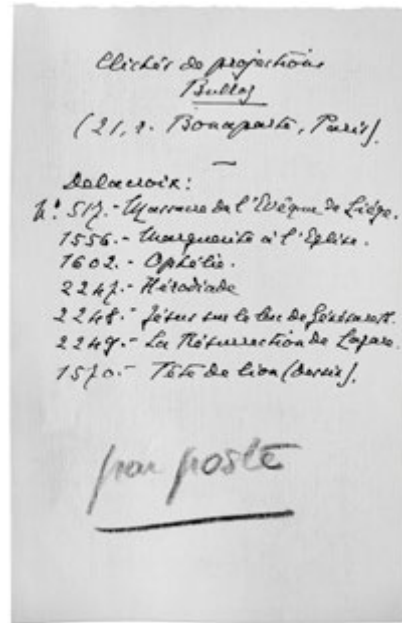 Clichés de projections
Bulloz
(21, r. Bonaparte, Paris).
—
Delacroix:
N° 517.- Massacre de l'Evêque de Liége.
1556.- Marguerite à l'Eglise.
1602.- Ophélie.
2247.- Hérodiade
2248.- Jésus sur le lac de Génésareth.
2249.- La Résurrection de Lazare.
1570.- Tête de lion (Dessin).
par poste